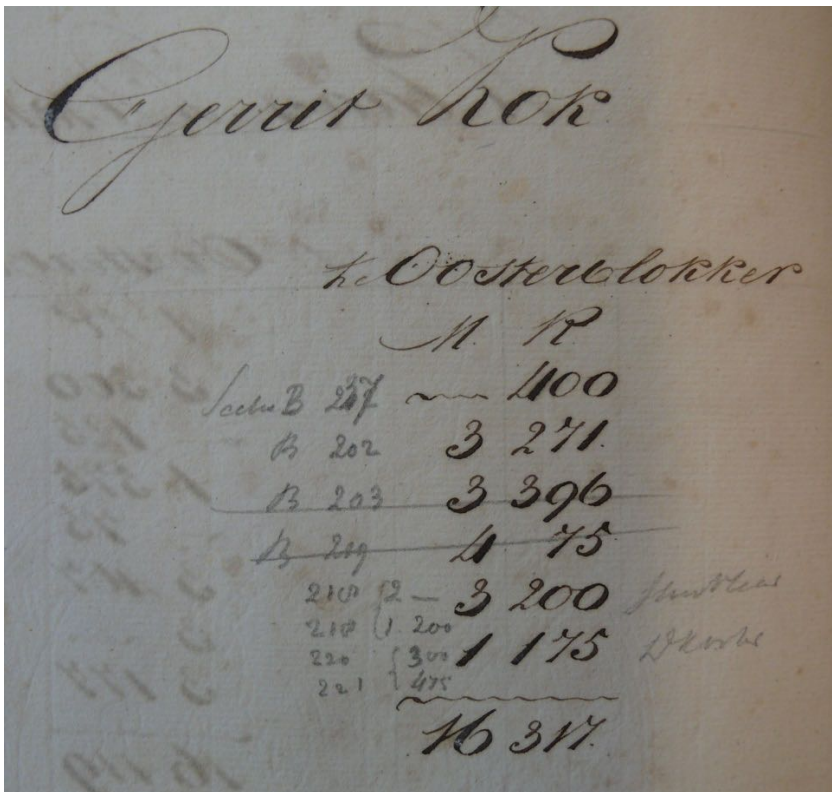 Gerrit Kok
te Oosterblokker
M. R
B 237 ~ 400
B 202 3 271.
B 203 3 396
B 219 4 75
218 { 2 — 3 200
218 { 1 200
220 { 300 1 175
221 { 475
16 317.